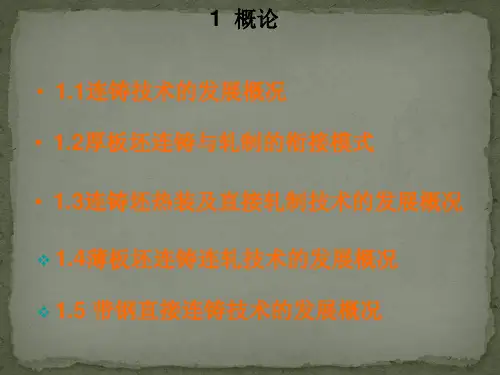 1 概论
• 1.1连铸技术的发展概况
• 1.2厚板坯连铸与轧制的衔接模式
• 1.3连铸坯热装及直接轧制技术的发展概况
❖ 1.4薄板坯连铸连轧技术的发展概况
❖ 1.5 带钢直接连铸技术的发展概况